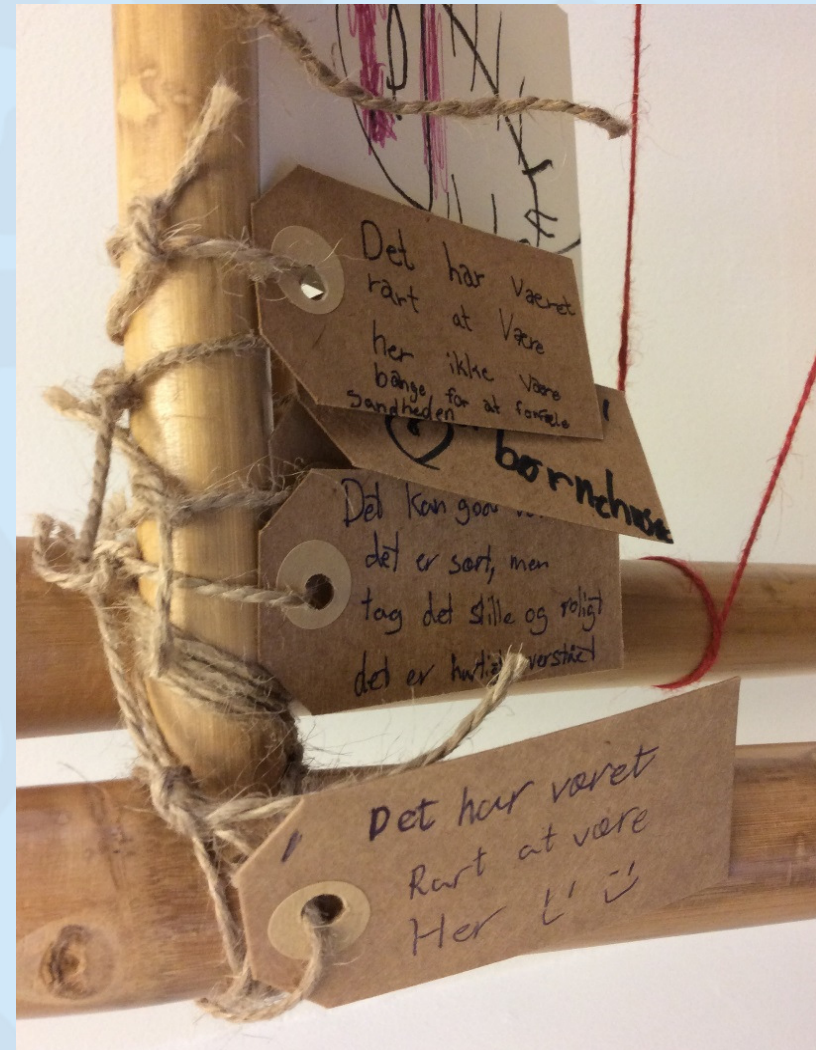 Det har været
rart at være
her ikke være
bange for at fortælle
Sandheden
børnehuset
Det kan godt
det er sort, men
tag det stille og roligt
det er hurtigt overstået
Det har været
Rart at være
Her